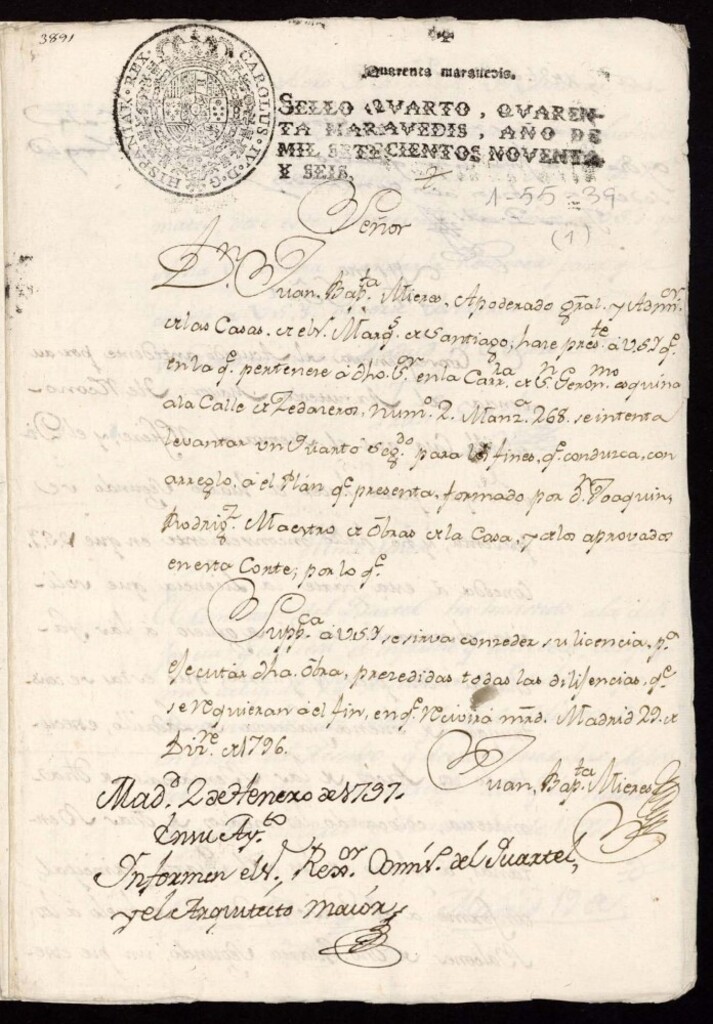 3891
CAROLUS IV D G HISPANIAR REX
Quarenta maravedis.
SELLO QVARTO, QVAREN-
TA MARAVEDIS, AÑO DE
MIL SETECIENTOS NOVENTA
Y SEIS.
1-55-39
(1)
Señor
Dn. Juan Bapta. Mieres, Apoderado gral. y Admor.
de las Casas de el Sr. Marqs. de Santiago, hace preste. á V.S.Y. qe.
en la qe. pertenece á dho. Sor. en la Carra. de Sn. Geronmo. esquina
a la Calle de Zedaceros, numo. 2. Manza. 268. se intenta
levantar un Quarto segdo. para los fines, qe. conduzca, con
arreglo, á el Plan qe. presenta, formado por dn. Joaquin
Rodrigz. Maestro de Obras de la Casa, y de los aprovados
en esta Corte; por lo qe.
Suppca. á V.S.Y. se sirva conzeder su licencia, pa.
ejecutar dha. Obra, prezedidas todas las dilijencias, qe.
se requieran á el fin, en qe. recivirá mrd. Madrid 29. de
Dizre. de 1796.
Juan Bapta. Mieres
Madd. 2 de Henero de 1797.
En su Ayto.
Informen el Sr. Rexor. Comiso. del Quartel,
y el Arquitecto maior